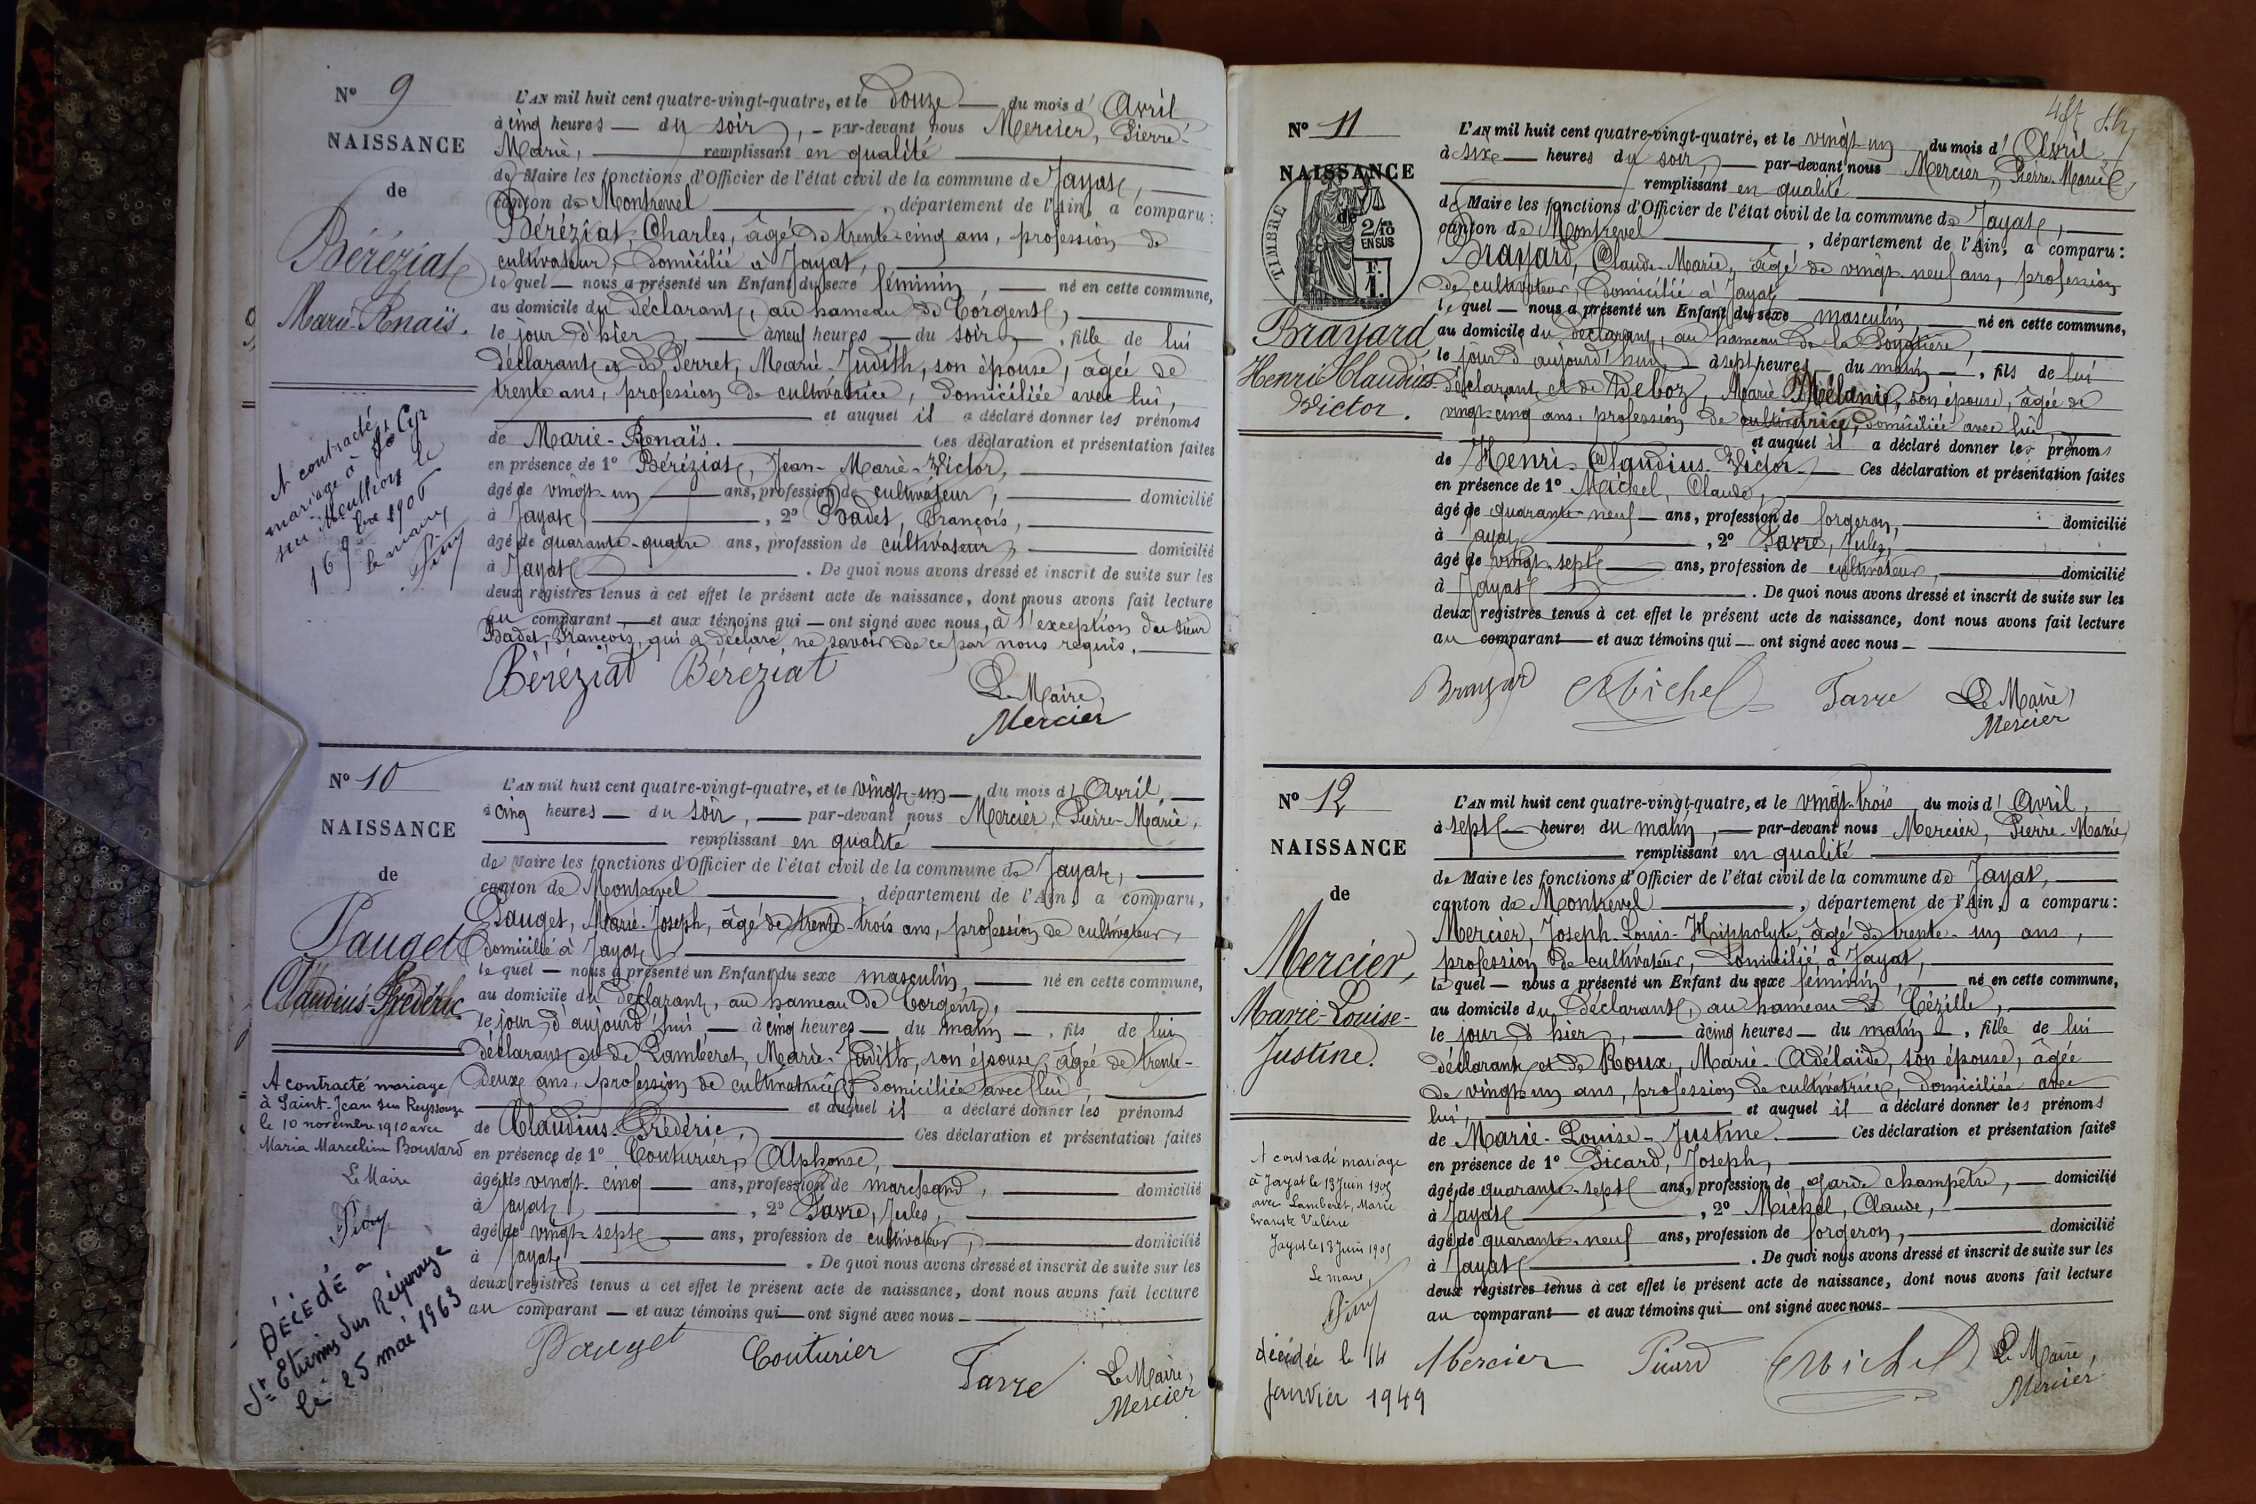 N° 9
NAISSANCE
de
Béréziat
Marie-Renaïs.
A contracté
mariage à St Cyr
sur Menthon le
16 9bre 1905
le maire
L'AN mil huit cent quatre-vingt-quatre, et le douze du mois d'Avril
à cinq heures du soir, par-devant nous Mercier, Pierre-
Marie, remplissant en qualité
de Maire les fonctions d'Officier de l'état civil de la commune de Jayat,
canton de Montrevel, département de l'Ain, a comparu:
Béréziat, Charles, âgé de trente-cinq ans, profession de
cultivateur, domicilié à Jayat,
lequel nous a présenté un Enfant du sexe féminin, né en cette commune,
au domicile du déclarant, au hameau de Corgent,
le jour d'hier, à neuf heures du soir, fille de lui
déclarant et de Perret, Marie-Judith, son épouse, âgée de
trente ans, profession de cultivatrice, domiciliée avec lui,
et auquel il a déclaré donner les prénoms
de Marie-Renaïs. Ces déclaration et présentation faites
en présence de 1° Béréziat, Jean-Marie-Victor,
âgé de vingt-un ans, profession de cultivateur, domicilié
à Jayat, 2° Badet, François,
âgé de quarante-quatre ans, profession de cultivateur, domicilié
à Jayat. De quoi nous avons dressé et inscrit de suite sur les
deux registres tenus à cet effet le présent acte de naissance, dont nous avons fait lecture
au comparant et aux témoins qui ont signé avec nous, à l'exception du sieur
Badet, François, qui a déclaré ne savoir de ce par nous requis.
Béréziat Béréziat
Le Maire,
Mercier
N° 10
NAISSANCE
de
Pauget
Claudius-Frédéric
A contracté mariage
à Saint-Jean sur Reyssouze
le 10 novembre 1910 avec
Maria Marceline Bouvard
Le Maire
DÉCEDÉ à
St Etienne sur Reyssouze
le 25 mai 1963
L'AN mil huit cent quatre-vingt-quatre, et le vingt-un du mois d'Avril
à cinq heures du soir, par-devant nous Mercier, Pierre-Marie,
remplissant en qualité
de Maire les fonctions d'Officier de l'état civil de la commune de Jayat,
canton de Montrevel, département de l'Ain, a comparu,
Pauget, Marie-Joseph, âgé de trente-trois ans, profession de cultivateur,
domicilié à Jayat
lequel nous a présenté un Enfant du sexe masculin, né en cette commune,
au domicile du déclarant, au hameau de Corgent,
le jour d'aujourd'hui à cinq heures du matin, fils de lui
déclarant et de Lamberet, Marie-Judith, son épouse, âgée de trente-
deux ans, profession de cultivatrice, domiciliée avec lui,
et auquel il a déclaré donner les prénoms
de Claudius-Frédéric, Ces déclaration et présentation faites
en présence de 1° Couturier, Alphonse,
âgé de vingt-cinq ans, profession de marchand, domicilié
à Jayat, 2° Favre, Jules,
âgé de vingt-sept ans, profession de cultivateur, domicilié
à Jayat. De quoi nous avons dressé et inscrit de suite sur les
deux registres tenus à cet effet le présent acte de naissance, dont nous avons fait lecture
au comparant et aux témoins qui ont signé avec nous
Pauget Couturier Favre Le Maire,
Mercier
N° 11
NAISSANCE
de
TIMBRE
2/10
EN SUS
F.
1.
Brayard
Henri-Claudius
Victor.
L'AN mil huit cent quatre-vingt-quatre, et le vingt-un du mois d'Avril
à six heures du soir, par-devant nous Mercier, Pierre-Marie,
remplissant en qualité
de Maire les fonctions d'Officier de l'état civil de la commune de Jayat,
canton de Montrevel, département de l'Ain, a comparu:
Brayard, Claude-Marie, âgé de vingt-neuf ans, profession
de cultivateur, domicilié à Jayat
lequel nous a présenté un Enfant du sexe masculin né en cette commune,
au domicile du déclarant, au hameau de la
le jour d'aujourd'hui à sept heures du matin, fils de lui
déclarant et de Deboz, Marie-Mélanie, son épouse, âgée de
vingt-cinq ans, profession de cultivatrice, domiciliée avec lui
et auquel il a déclaré donner les prénoms
de Henri-Claudius-Victor Ces déclaration et présentation faites
en présence de 1° Michel, Claude,
âgé de quarante-neuf ans, profession de forgeron, domicilié
à Jayat, 2° Favre, Jules,
âgé de vingt-sept ans, profession de cultivateur, domicilié
à Jayat. De quoi nous avons dressé et inscrit de suite sur les
deux registres tenus à cet effet le présent acte de naissance, dont nous avons fait lecture
au comparant et aux témoins qui ont signé avec nous
Brayard Michel Favre Le Maire,
Mercier
N° 12
NAISSANCE
de
Mercier,
Marie-Louise-
Justine.
A contracté mariage
à Jayat le 13 Juin 1905
avec Lamberet, Marie
Evariste Valérie
Jayat le 13 Juin 1905
Le maire,
décédée le 14
janvier 1949
L'AN mil huit cent quatre-vingt-quatre, et le vingt-trois du mois d'Avril,
à sept heures du matin, par-devant nous Mercier, Pierre-Marie,
remplissant en qualité
de Maire les fonctions d'Officier de l'état civil de la commune de Jayat,
canton de Montrevel, département de l'Ain, a comparu:
Mercier, Joseph-Louis-Hippolyte, âgé de trente-un ans,
profession de cultivateur, domicilié à Jayat,
lequel nous a présenté un Enfant du sexe féminin, né en cette commune,
au domicile du déclarant, au hameau de Cézille,
le jour d'hier, à cinq heures du matin, fille de lui
déclarant et de Roux, Marie-Adélaïde, son épouse, âgée
de vingt-un ans, profession de cultivatrice, domiciliée avec
lui, et auquel il a déclaré donner les prénoms
de Marie-Louise-Justine. Ces déclaration et présentation faites
en présence de 1° Picard, Joseph,
âgé de quarante-sept ans, profession de garde champêtre, domicilié
à Jayat, 2° Michel, Claude,
âgé de quarante-neuf ans, profession de forgeron, domicilié
à Jayat. De quoi nous avons dressé et inscrit de suite sur les
deux registres tenus à cet effet le présent acte de naissance, dont nous avons fait lecture
au comparant et aux témoins qui ont signé avec nous
Mercier Picard Michel Le Maire,
Mercier